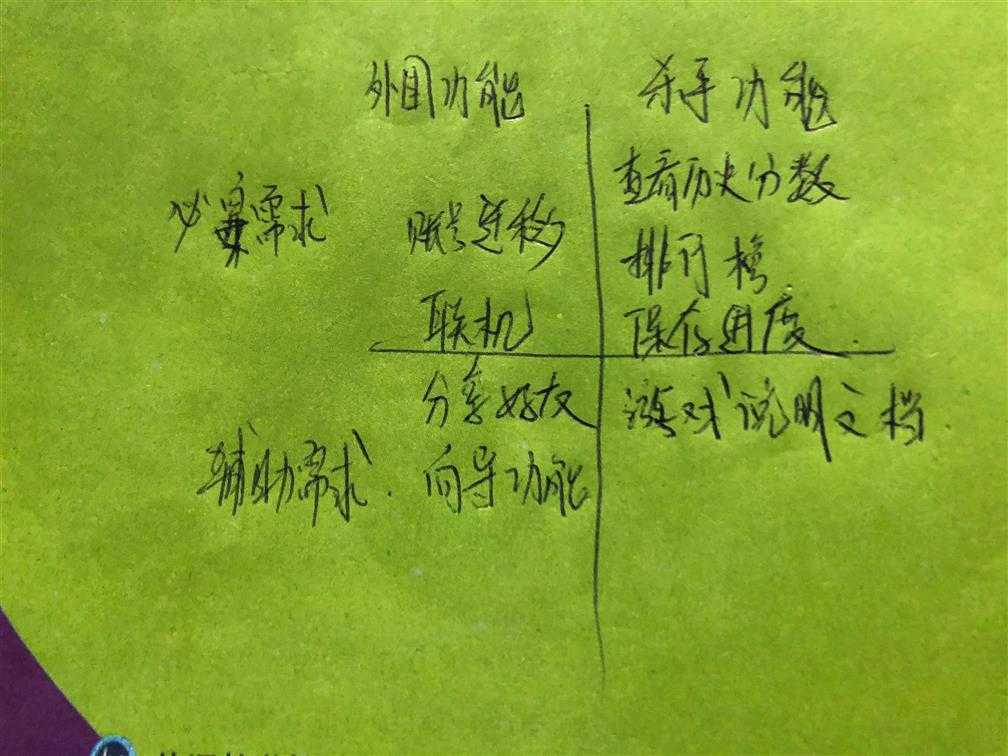 外围功能 杀手功能
查看历史分数
必要需求 账号迁移
排行榜
联机 保存进度
分享好友 游戏说明文档
辅助需求 向导功能